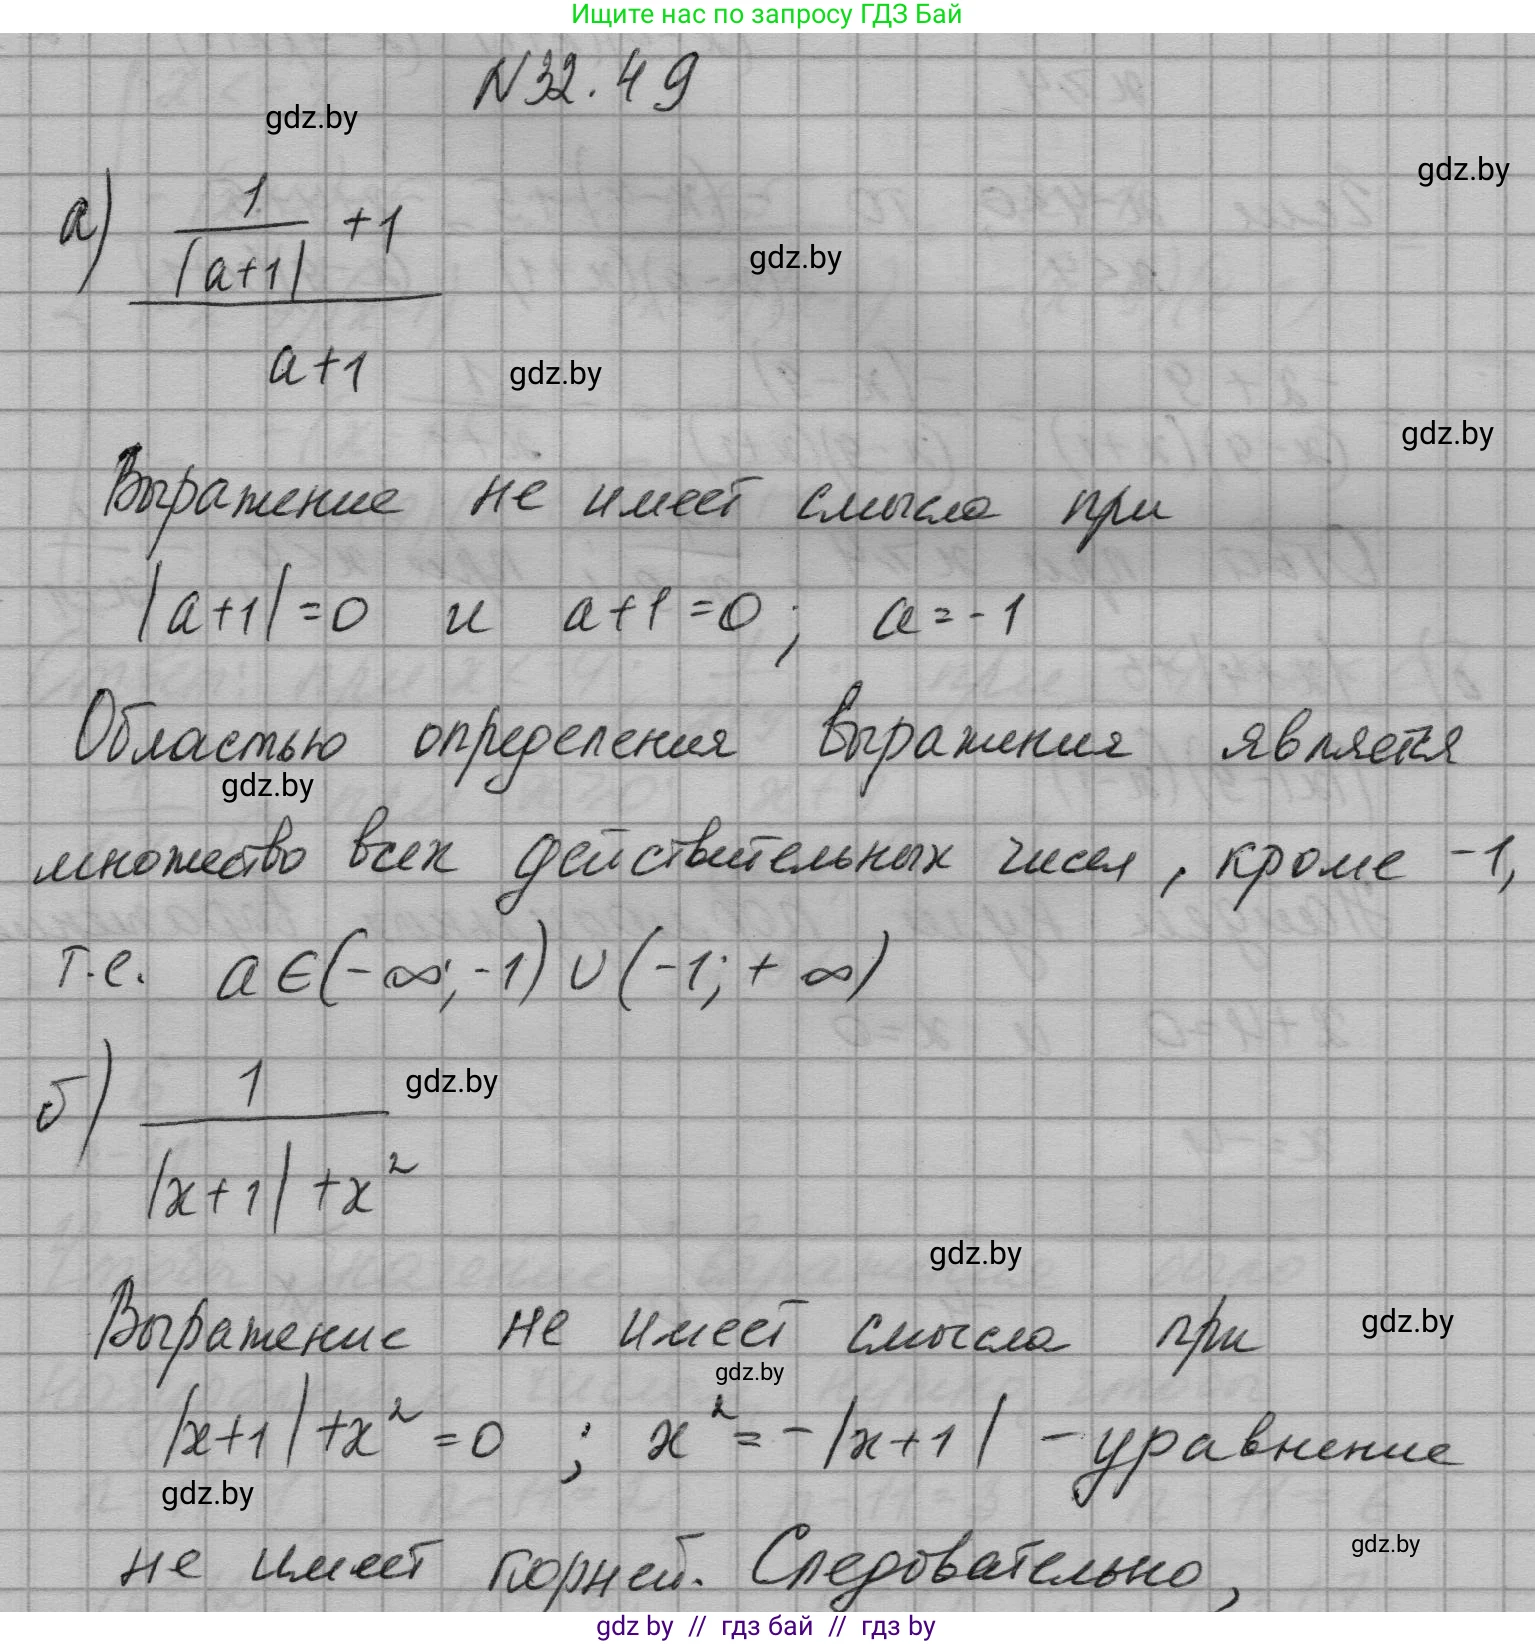 Ищите нас по запросу ГДЗ Бай
N32.49
gdz.by
gdz.by
а) (1/|a+1| + 1)/(a+1)
gdz.by
gdz.by
gdz.by
Выражение не имеет смысла при
|a+1|=0 и a+1=0; a=-1
Областью определения выражения является
gdz.by
множество всех действительных чисел, кроме -1,
т.е. a∈(-∞;-1)∪(-1;+∞)
б) 1/(|x+1|+x²)
gdz.by
gdz.by
Выражение не имеет смысла при
gdz.by
gdz.by
|x+1|+x²=0; x²=-|x+1| - уравнение
gdz.by
не имеет корней. Следовательно,
gdz.by
gdz by // гдз бай // гдз by